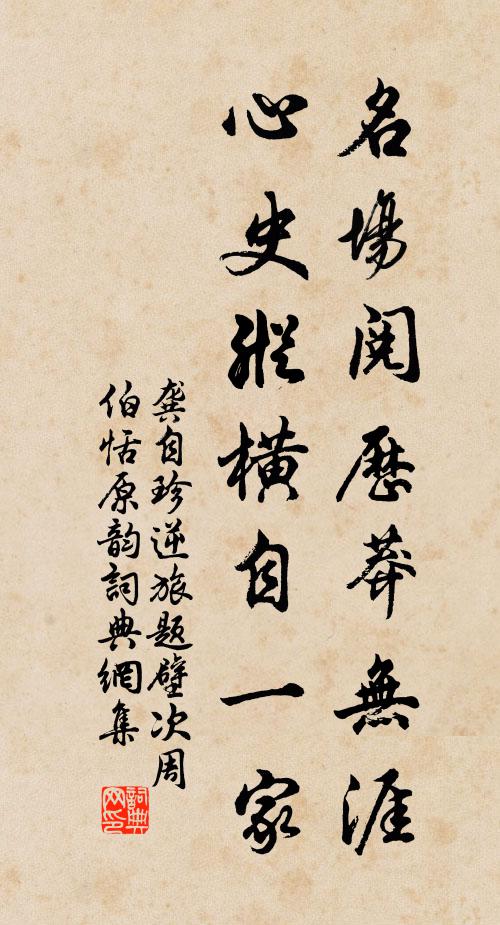 名場閱歷莽無涯
心史縱橫自一家
龔自珍逆旅題壁次周
伯恬原韵詞典網集
詞典
网印